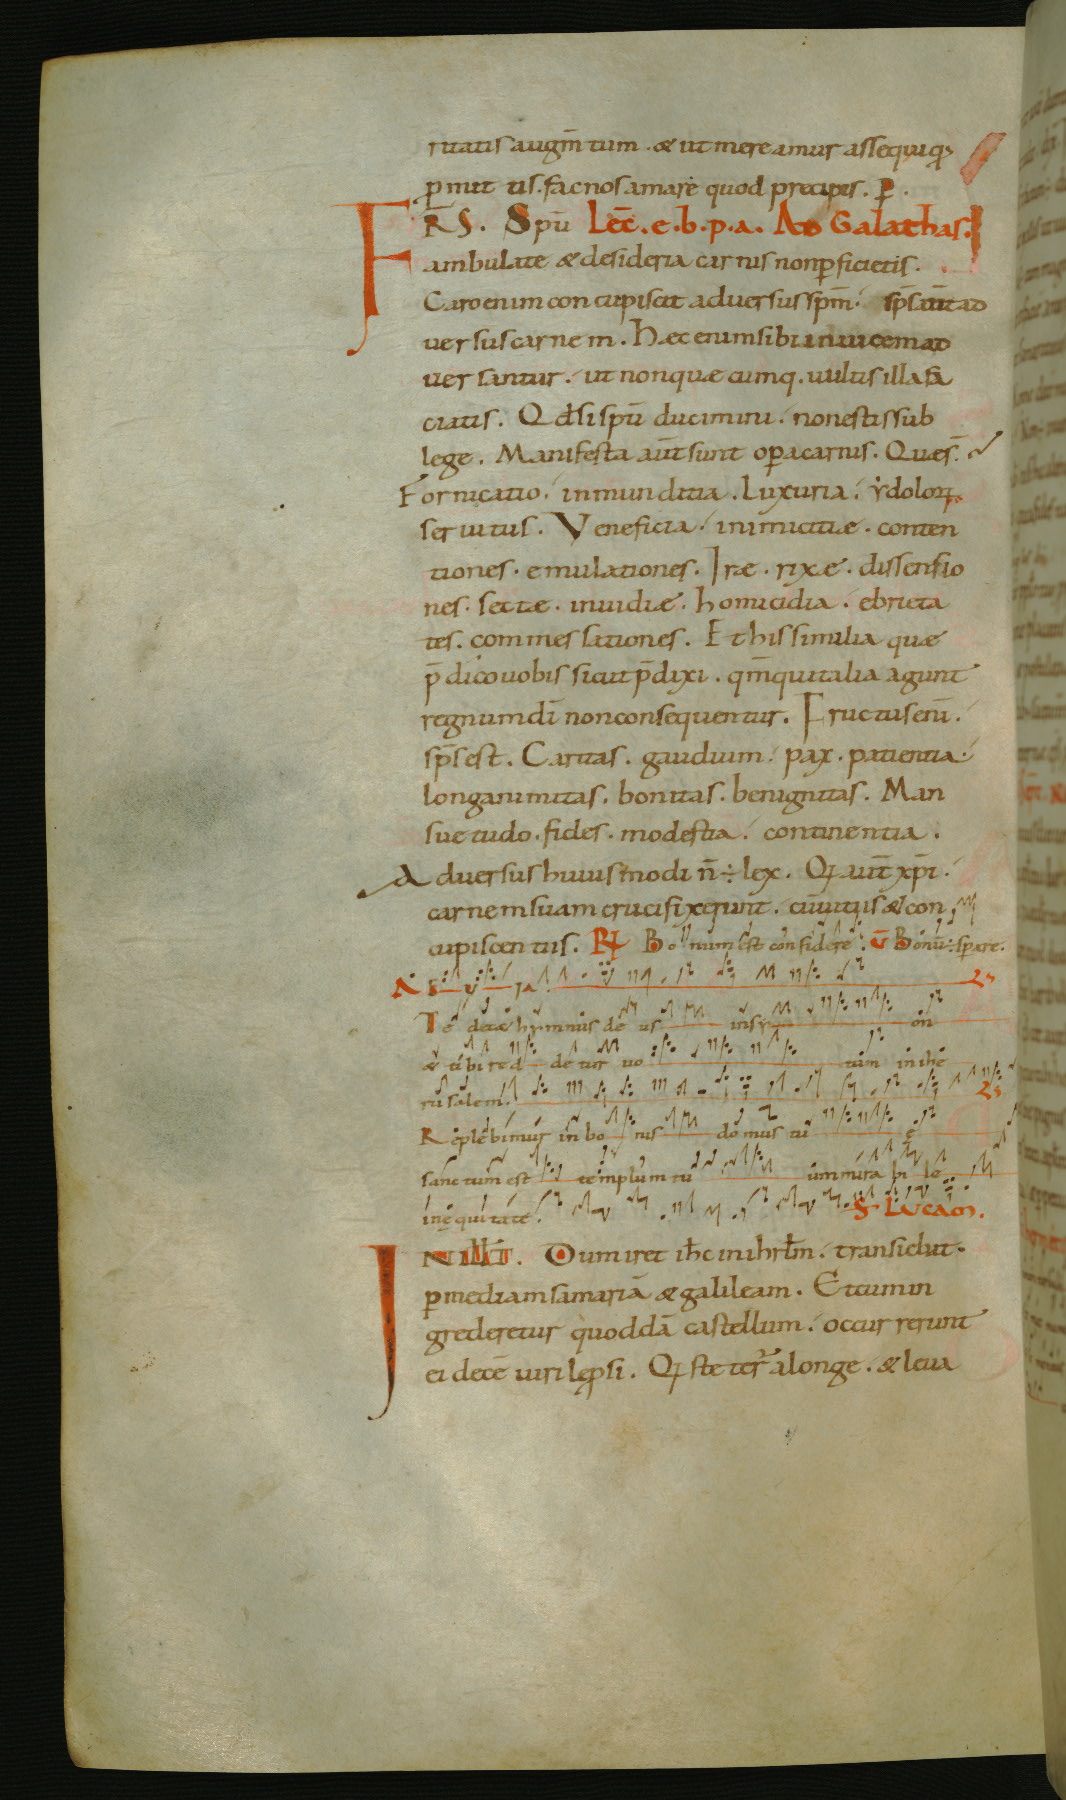 ritatis augm̄tum. & ut mereamur assequi q̄
p̄mittis. fac nos amare quod precipis. P̄.
FRS. Spū Lec̄. e. b. p. a. Ad Galathas.
ambulate & desideria carnis non p̄ficietis.
Caro enim concupiscit adversus sp̄m. sp̄s aūt ad
versus carnem. Hæc enim sibi invicem ad
versantur. ut non quæcumq. vultis illa fa
ciatis. Qd̄ si spū ducimini. non estis sub
lege. Manifesta aūt sunt opera carnis. Quæ s̄.
Fornicatio. inmunditia. Luxuria. ydoloꝝ
servitus. Veneficia. inimicitiæ. conten
tiones. emulationes. Iræ. rixæ. dissensio
nes. sectæ. invidiæ. homicidia. ebrieta
tes. commessationes. Et his similia quæ
p̄dico vobis sicut p̄dixi. qm̄ qui talia agunt
regnum dī non consequentur. Fructus enī.
sp̄s est. Caritas. gaudium. pax. patientia.
longanimitas. bonitas. benignitas. Man
suetudo. fides. modestia. continentia.
Adversus huiusmodi n̄ ÷ lex. Qi aūt xp̄i.
carnem suam crucifixerunt. cū vitiis & con
cupiscentiis. R̄ Bonum est confidere. V̄ Bonū ÷ sperare.
A E V IA
Te decæt hymnus deus in syon
& tibi reddetur votum in ihe
rusalem.
Replebimur in bonis domus tuę
sanctum est templum tuum mirabile
in equitate. S. Lucam.
IN ILL T. Dum iret ih̄c in ihrl̄m. transiebat
p̄ mediam samariā & galileam. Et cum in
grederetur quoddā castellum. occurrerunt
ei decē viri lep̄si. Qi steter̄ a longe. & leva